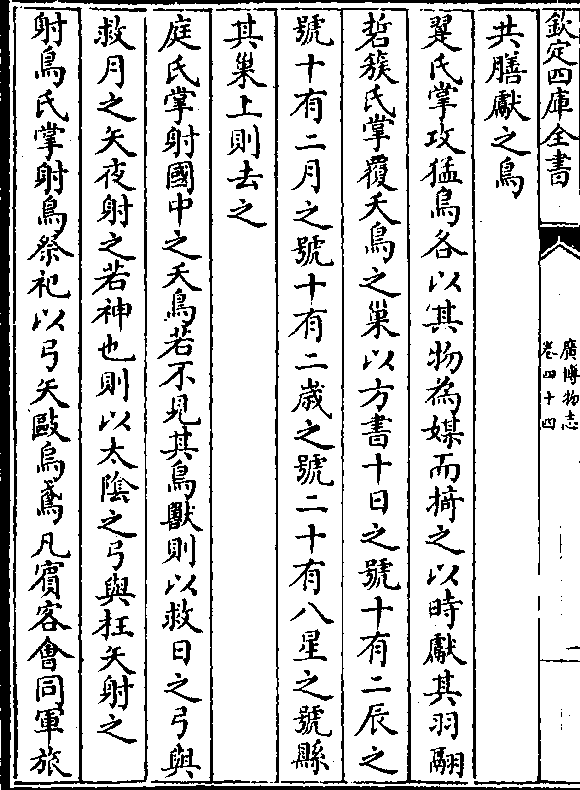 欽定四庫全書
廣博物志
卷四十四
共膳獻之鳥
翨氏掌攻猛鳥各以其物為媒而掎之以時獻其羽翮
硩蔟氏掌覆夭鳥之巢以方書十日之號十有二辰之
號十有二月之號十有二歲之號二十有八星之號縣
其巢上則去之
庭氏掌射國中之夭鳥若不見其鳥獸則以救日之弓與
救月之矢夜射之若神也則以太陰之弓與枉矢射之
射鳥氏掌射鳥祭祀以弓矢敺烏鳶凡賓客會同軍旅